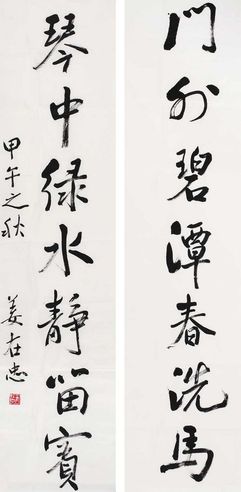 門外碧潭春洗馬
琴中緑水靜留賓
甲午之秋
姜在忠